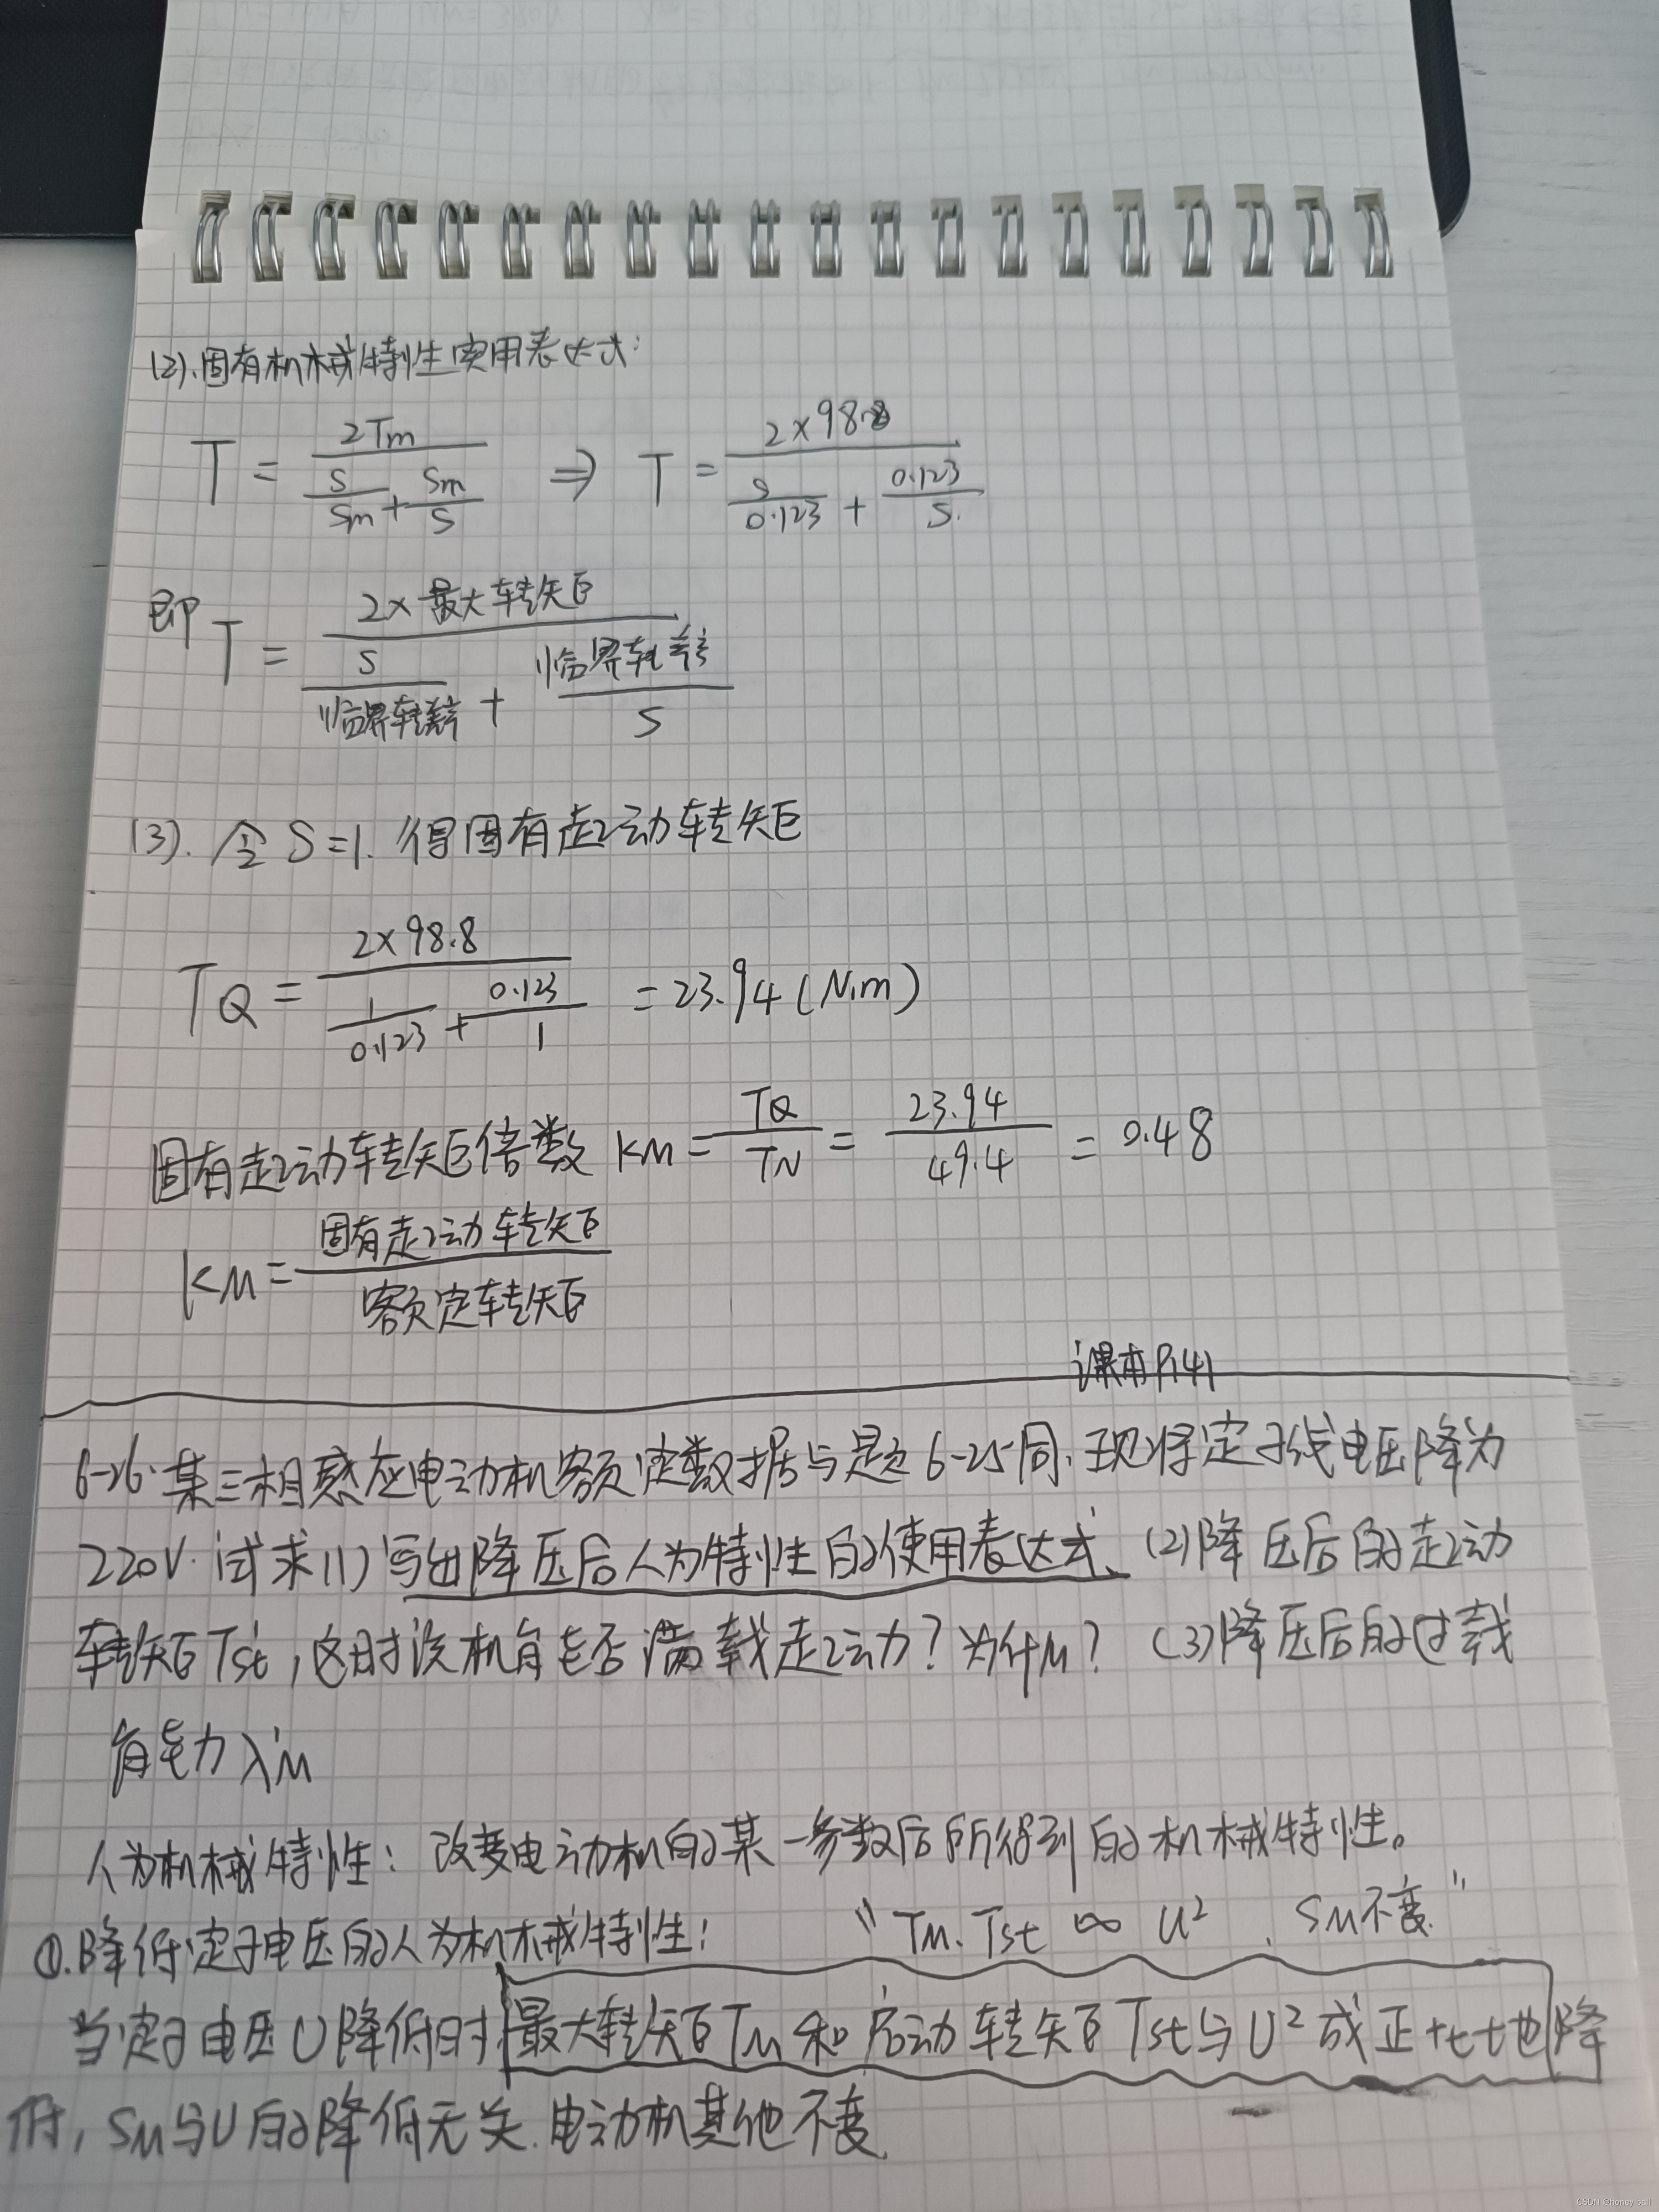 (2).固有机械特性实用表达式:
T = \frac{2Tm}{\frac{S}{Sm}+\frac{Sm}{S}} ⇒ T = \frac{2×98.8}{\frac{S}{0.123}+\frac{0.123}{S.}}
即 T = \frac{2×最大转矩}{\frac{S}{临界转差率}+\frac{临界转差率}{S}}
(3). 令S=1. 得固有起动转矩
TQ = \frac{2×98.8}{\frac{1}{0.123}+\frac{0.123}{1}} = 23.94 (N.m)
固有起动转矩倍数 KM = \frac{TQ}{TN} = \frac{23.94}{49.4} = 0.48
KM = \frac{固有起动转矩}{额定转矩}
课本P141
6-26.某三相感应电动机额定数据与题6-25同.现将定子线电压降为
220V.试求(1)写出降压后人为特性的使用表达式、(2)降压后的起动
转矩Tst',这时该机能否满载起动?为什么? (3)降压后的过载
能力λ'M
人为机械特性: 改变电动机的某一参数后所得到的机械特性。
①.降低定子电压的人为机械特性: "TM.Tst ∞ U², SM不变."
当定子电压U降低时,最大转矩TM和启动转矩Tst与U²成正比地降
低, SM与U的降低无关.电动机其他不变.
CSDN @honey ball